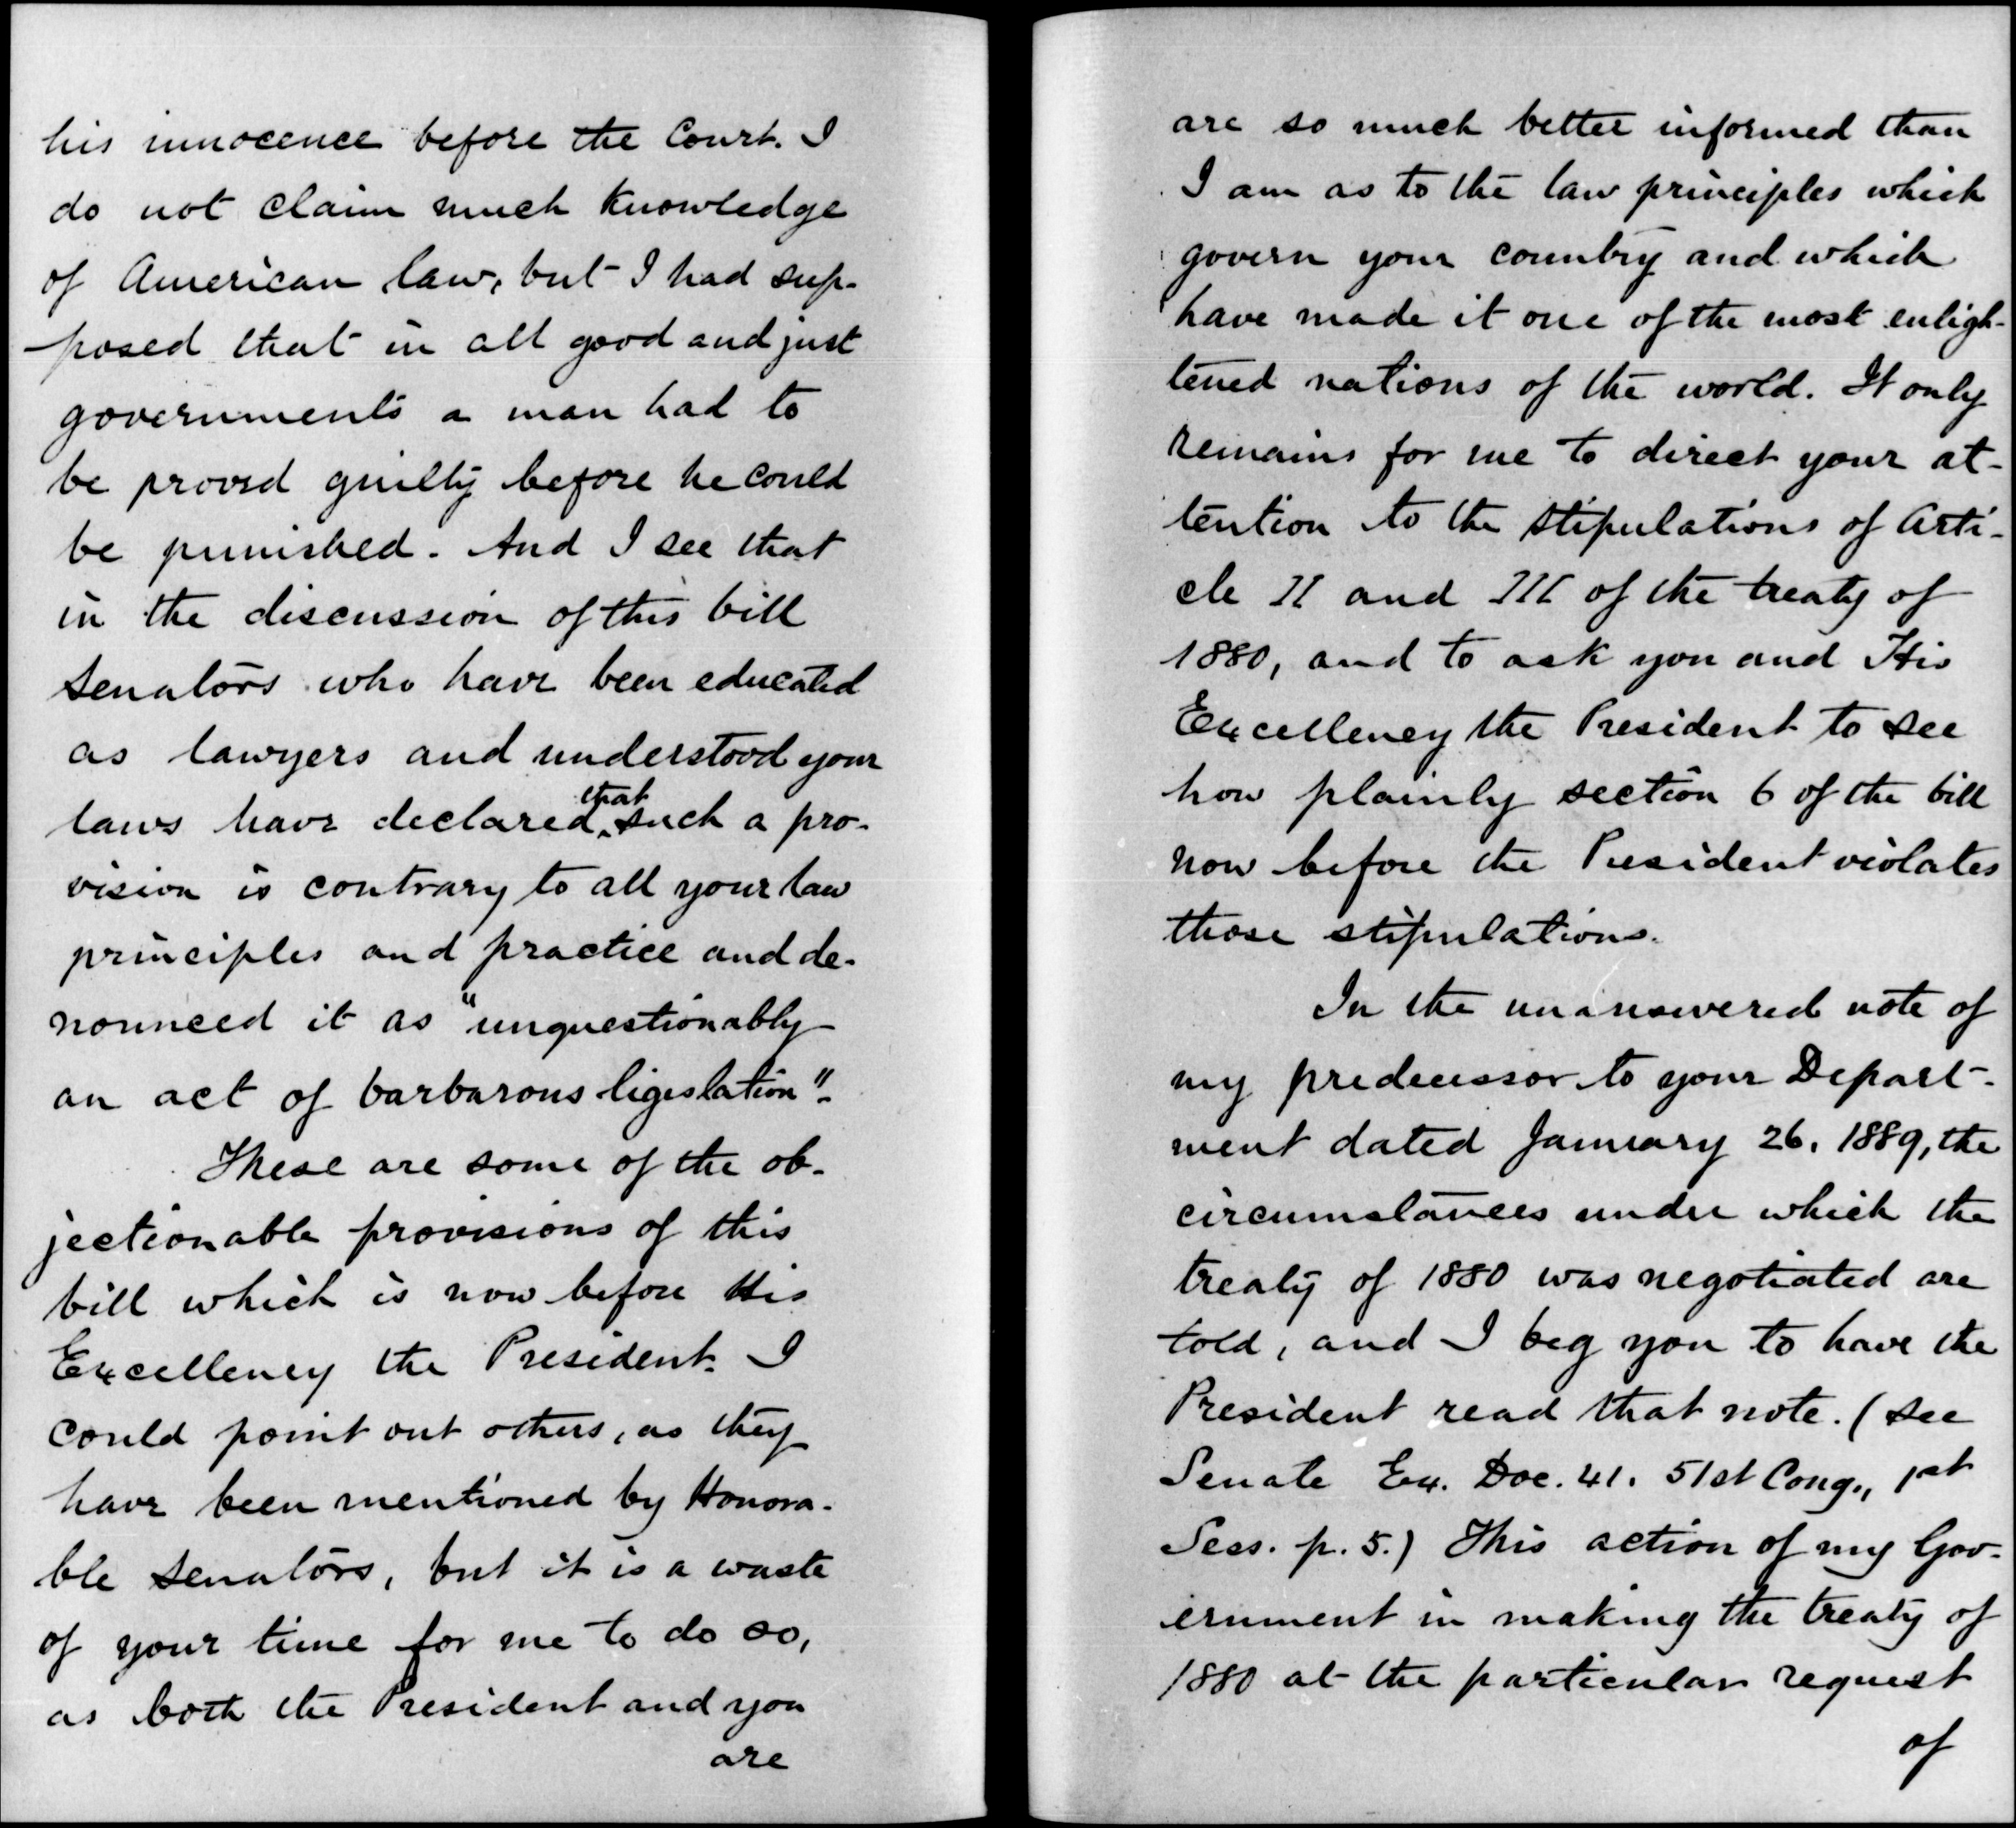 his innocence before the Court. I
do not claim much knowledge
of American law, but I had sup-
posed that in all good and just
governments a man had to
be proved guilty before he could
be punished. And I see that
in the discussion of this bill
senators who have been educated
as lawyers and understood your
that
laws have declared such a pro-
vision is contrary to all your law
principles and practice and de-
nounced it as "unquestionably
an act of barbarous ligeslation".
These are some of the ob-
jectionable provisions of this
bill which is now before His
Excellency the President. I
could point out others, as they
have been mentioned by Honora-
ble senators, but it is a waste
of your time for me to do so,
as both the President and you
are
are so much better informed than
I am as to the law principles which
govern your country and which
have made it one of the most enligh-
tened nations of the world. It only
remains for me to direct your at-
tention to the stipulations of Arti-
cle II and III of the treaty of
1880, and to ask you and His
Excellency the President to see
how plainly section 6 of the bill
now before the President violates
those stipulations.
In the unanswered note of
my predecessor to your Depart-
ment dated January 26, 1889, the
circumstances under which the
treaty of 1880 was negotiated are
told, and I beg you to have the
President read that note. (see
Senate Ex. Doc. 41. 51st Cong., 1st
Sess. p. 5.) This action of my Gov-
ernment in making the treaty of
1880 at the particular request
of